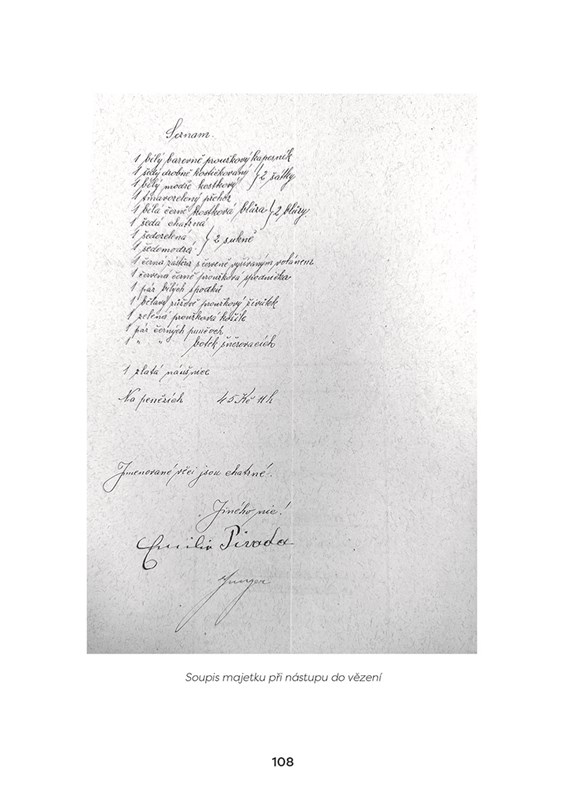 Seznam.
1 bílý barevně proužkový kapesník
1 šedý drobně kostičkovaný } 2 šátky
1 bílý modře kostkový
1 tmavozelený přehoz
1 bílá černě kostková blůza } 2 blůzy
1 šedá chatrná
1 šedozelená } 2 sukně
1 šedomodrá
1 černá zástěra s červeně vyšívaným volánem
1 červená černě proužková spodnička
1 pár bílých spodků
1 bělavý růžově proužkový živůtek
1 zelená proužková košile
1 pár černých punčoch
1 " " botek šněrovacích
1 zlatá náušnice
Na penězích 45 Kč 11 h
Jmenované věci jsou chatrné.
Jiného nic!
Emilie Pivoda
Soupis majetku při nástupu do vězení
108